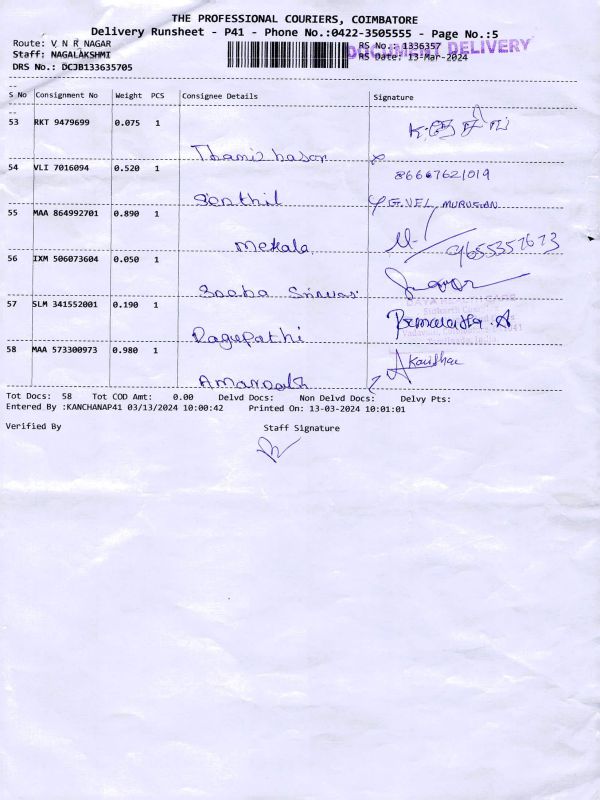 THE PROFESSIONAL COURIERS, COIMBATORE
Delivery Runsheet - P41 - Phone No.:0422-3505555 - Page No.:5
Route: V N R NAGAR
RS No.: 1336357
DOCUMENT DELIVERY
Staff: NAGALAKSHMI
RS Date: 13-Mar-2024
DRS No.: DCJB133635705
S No Consignment No Weight PCS Consignee Details Signature
53 RKT 9479699 0.075 1
Thamizhasar
54 VLI 7016094 0.520 1 86667621019
Senthil G.VEL MURUGAN
55 MAA 864992701 0.890 1
Mekala 9655357673
56 IXM 506073604 0.050 1
Saaba Srinivas
57 SLM 341552001 0.190 1
Ragupathi
58 MAA 573300973 0.980 1
Tot Docs: 58 Tot COD Amt: 0.00 Delvd Docs: Non Delvd Docs: Delvy Pts:
Entered By :KANCHANAP41 03/13/2024 10:00:42 Printed On: 13-03-2024 10:01:01
Verified By Staff Signature